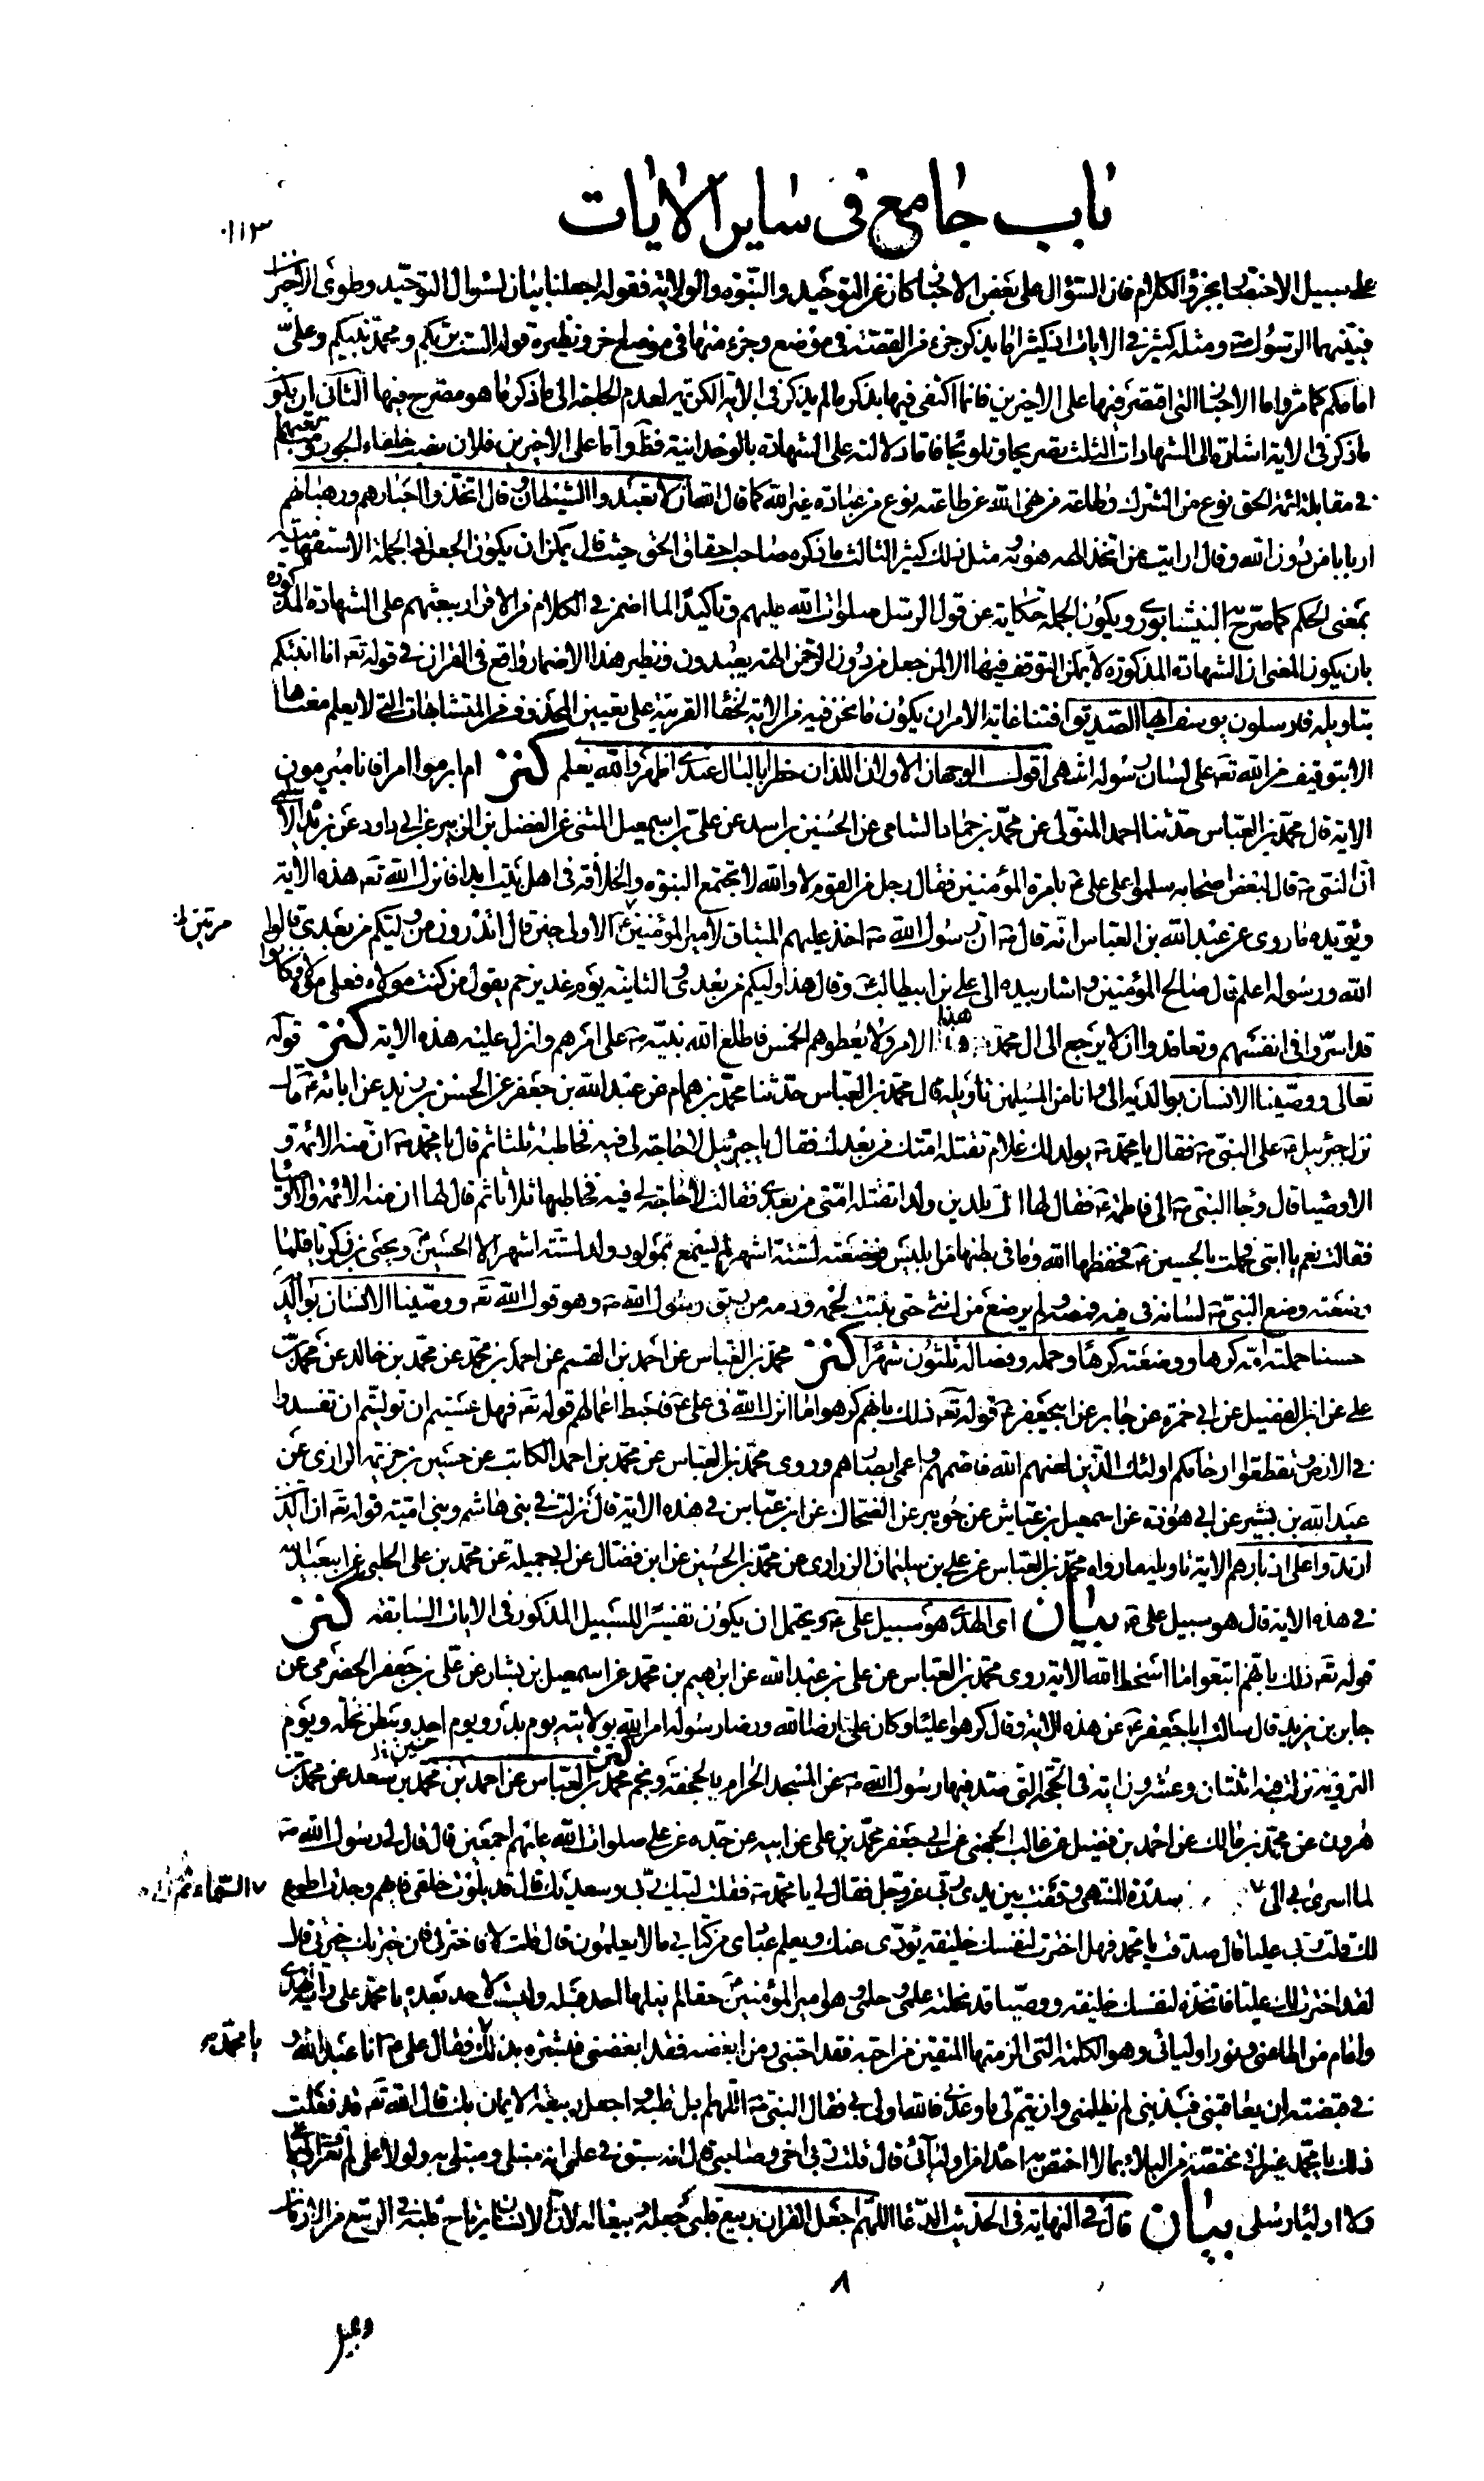 باب جامع في ساير الايات
١١٣
على سبيل الاختصار بجزء الكلام فان السؤال على بعض الاخبار كان عن التوحيد والنبوة والولاية فقوله اجعلنا بيان لسؤال التوحيد وطوى الاخيرين
فبينهما الرسول ص ومثله كثير في الايات اذ كثيرا ما يذكر جزء من القصة في موضع وجزء منها في موضع اخر ونظيره قوله الست بربكم ومحمد نبيكم وعلي
امامكم كما مر واما الاخبار التي اقتصر فيها على الاخيرين فانما اكتفى فيها بذكر ما لم يذكر في الاية الكريمة لعدم الحاجة الى ما ذكر ما هو مصرح فيها الثاني ان يكون
ما ذكر في الاية اشارة الى الشهادات الثلث تصريحا وتلويحا فاما دلالته على الشهادة بالوحدانية فظ واما على الاخيرين فلان نصب خلفاء الجور ومتابعتهم
في مقابلة ائمة الحق نوع من الشرك وطاعة من نهى الله عن طاعته نوع من عبادة غير الله كما قال الله ان لا تعبدوا الشيطان وقال اتخذوا احبارهم ورهبانهم
اربابا من دون الله وقال ارايت من اتخذ الهه هويه مثل ذلك كثير الثالث ما ذكره صاحب احقاق الحق حيث قال يمكن ان يكون الجعل في الجملة الاستفهامية
بمعنى الحكم كما صرح النيشابوري ويكون الجملة حكاية عن قول الرسل صلوات الله عليهم وتاكيدا لما اضمر في الكلام من الاقرار ببعثهم على الشهادة المذكورة
بان يكون المعنى ان الشهادة المذكورة لا يمكن التوقف فيها الا لمن جعل من دون الرحمن الهة يعبدون ونظير هذا الاضمار واقع في القران في قوله تعه انا انبئكم
بتاويله فارسلون يوسف ايها الصديق افتنا غاية الامر ان يكون ما نحن فيه من الاية لخفاء القرينة على تعيين المحذوف من المتشابهات التي لا يعلم معناها
الا بتوقيف من الله تعه على لسان رسوله انتهى اقول الوجهان الاولان اللذان خطرا بالبال عندي اظهر والله يعلم كنز ام ابرموا امرا فانا مبرمون
الاية قال محمد بن العباس حدثنا احمد المتولي عن محمد بن حماد الشامي عن الحسين بن اسد عن علي بن اسمعيل المثنى عن الفضل بن الزبير عن ابي داود عن بريدة الاسلمي
ان النبي ص قال لبعض اصحابه سلموا على علي ع بامرة المؤمنين فقال رجل من القوم لا والله لا تجتمع النبوة والخلافة في اهل بيت ابدا فانزل الله تعه هذه الاية
ويؤيده ما روى عن عبد الله بن العباس انه قال ان رسول الله ص اخذ عليهم الميثاق لامير المؤمنين ع الاولى حين قال اتدرون من وليكم من بعدي قالوا
مرتين
الله ورسوله اعلم قال صالح المؤمنين واشار بيده الى علي بن ابيطالب ع وقال هذا وليكم من بعدي والثانية يوم غدير خم يقول من كنت مولاه فعلي مولاه وكانوا
قد اسروا في انفسهم وتعاقدوا ان لا يرجع الى ال محمد ص هذا الامر ولا يعطوهم الخمس فاطلع الله نبيه ص على امرهم وانزل عليه هذه الاية كنز قوله
تعالى ووصينا الانسان بوالديه الى وانا من المسلمين تاويله قال محمد بن العباس حدثنا محمد بن همام عن عبد الله بن جعفر عن الحسن بن زيد عن ابائه ع قال
نزل جبرئيل ع على النبي ص فقال يا محمد ص يولد لك غلام تقتله امتك من بعدك فقال يا جبرئيل لا حاجة لي فيه فخاطبه ثلثا ثم قال يا محمد ص ان منه الائمة و
الاوصيا قال وجاء النبي ص الى فاطمة ع فقال لها انك تلدين ولدا تقتله امتي من بعدي فقالت لا حاجة لي فيه فخاطبها ثلاثا ثم قال لها ان منه الائمة والاوصيا
فقالت نعم يا ابتي فحملت بالحسين ع فحفظها الله وما في بطنها من ابليس فوضعته لستة اشهر لم يسمع بمولود ولد لستة اشهر الا الحسين ويحيى بن زكريا فلما
وضعته وضع النبي ص لسانه في فيه فمصه ولم يرضع من انثى حتى نبت لحمه ودمه من ريق رسول الله ص وهو قول الله تعه ووصينا الانسان بوالديه
حسنا حملته امه كرها ووضعته كرها وحمله وفصاله ثلثون شهرا كنز محمد بن العباس عن احمد بن القسم عن احمد بن محمد عن محمد بن خالد عن محمد بن
علي عن ابن الفضيل عن ابي حمزة عن جابر عن ابيجعفر ع قوله تعه ذلك بانهم كرهوا ما انزل الله في علي ع فاحبط اعمالهم قوله تعه فهل عسيتم ان توليتم ان تفسدوا
في الارض وتقطعوا ارحامكم اولئك الذين لعنهم الله فاصمهم واعمى ابصارهم وروى محمد بن العباس عن محمد بن احمد الكاتب عن حسين بن خزيمة الرازي عن
عبد الله بن بشير عن ابي هوذة عن اسمعيل بن عياش عن جويبر عن الضحاك عن ابن عباس في هذه الاية قال نزلت في بني هاشم وبني امية قوله تعه ان الذين
ارتدوا على ادبارهم الاية تاويله ما رواه محمد بن العباس عن علي بن سليمان الزراري عن محمد بن الحسين عن ابن فضال عن ابي جميلة عن محمد بن علي الحلبي عن ابيعبدالله
في هذه الاية قال هو سبيل علي ع بيان اي الهدى هو سبيل علي ع ويحتمل ان يكون تفسيرا للسبيل المذكور في الايات السابقة كنز
قوله تعه ذلك بانهم اتبعوا ما اسخط الله الاية روى محمد بن العباس عن علي بن عبد الله عن ابرهيم بن محمد عن اسمعيل بن بشار عن علي بن جعفر الحضرمي عن
جابر بن يزيد قال سالت ابا جعفر ع عن هذه الاية وقال كرهوا عليا وكان علي رضا الله ورضا رسوله امر الله بولايته يوم بدر ويوم احد وببطن نخلة ويوم
التروية نزلت فيه اثنتان وعشرون اية في الحجة التي صد فيها رسول الله ص عن المسجد الحرام بالجحفة وبخم كنز محمد بن العباس عن احمد بن محمد بن سعد عن محمد بن
هرون عن محمد بن مالك عن احمد بن فضيل عن غالب الجهني عن ابي جعفر محمد بن علي عن ابيه عن جده عن علي صلوات الله عليهم اجمعين قال قال لي رسول الله ص
لما اسرى بي الى سدرة المنتهى وقفت بين يدي ربي عز وجل فقال لي يا محمد ص فقلت لبيك رب وسعديك قال قد بلوت خلقي فايهم وجدت اطوع
السماء ثم
لك قلت رب عليا قال صدقت يا محمد فهل اخترت لنفسك خليفة يؤدي عنك ويعلم عبادي من كتابي ما لا يعلمون قال قلت لا فاختر لي فان خيرتك خيرتي قال
لقد اخترت لك عليا فاتخذه لنفسك خليفة ووصيا قد نحلته علمي وحلمي وهو امير المؤمنين حقا لم ينلها احد قبله وليست لاحد بعده يا محمد علي راية الهدى
وامام من اطاعني ونور اوليائي وهو الكلمة التي الزمتها المتقين من احبه فقد احبني ومن ابغضه فقد ابغضني فبشره بذلك فقال علي ع انا عبد الله و
يا محمد ص
في قبضته ان يعاقبني فبذنبي لم يظلمني وان يتم لي ما وعدني فالله اولى بي فقال النبي ص اللهم اجل قلبه واجعل ربيعه الايمان بك قال الله تعه قد فعلت
ذلك يا محمد غير اني مختصه من البلاء بما لا اختص به احدا من اوليائي قال قلت رب اخي وصاحبي قال انه سبق في علمي انه مبتلى ومبتلى به ولولا علي لم تعرف
ولا اوليا رسلي بيان قال في النهاية في الحديث الدعا اللهم اجعل القران ربيع قلبي جعله ربيعا له لان الانسان يرتاح قلبه في الربيع من الازمان
٨